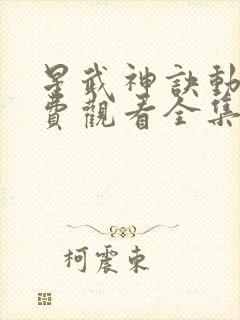 星武神訣動
費觀看全集
柯震東